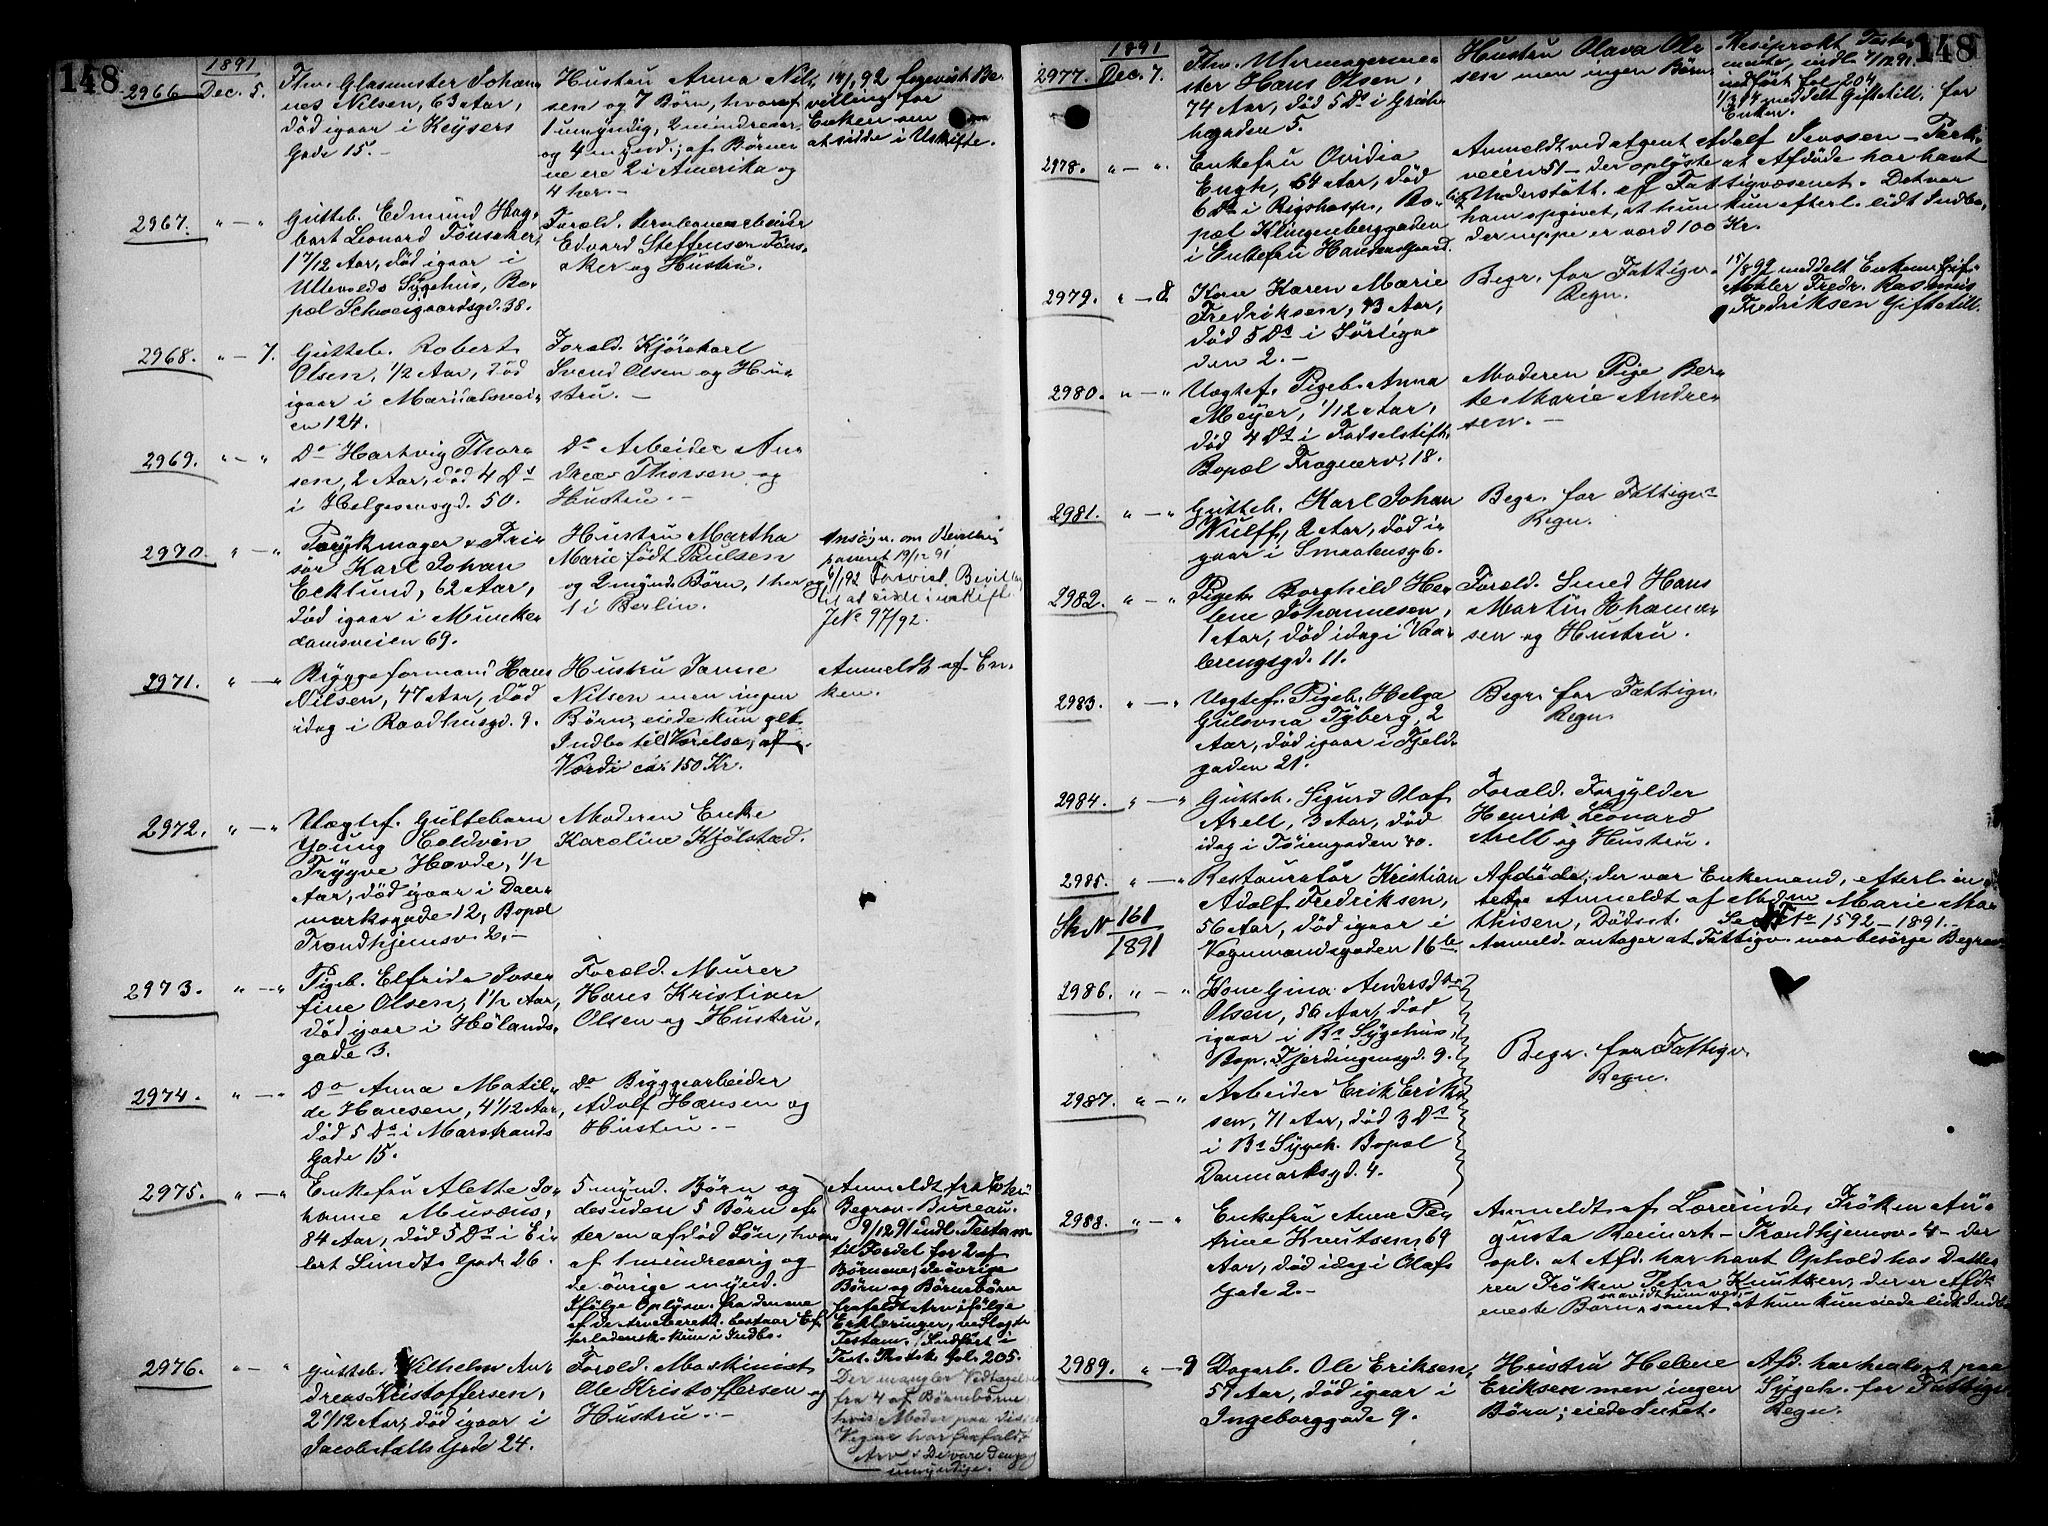 148
1891
2966 Dec. 5. Fhv. Glasmester Johan-
nes Nilsen, 63 Aar,
død igaar i Keysers
Gade 15. —
Hustru Anna Nil-
sen og 7 Børn, hvoraf
1 umyndig, 2 mindreaar.
og 4 mynd.; af Børne-
ne ere 2 i Amerika og
4 her. —
14/1 92 forevist Be-
villing for
Enken
at sidde i Uskifte.
2967. " — " Gutteb. Edmund Hag-
bart Leonard Tønsaker,
1 7/12 Aar, død igaar i
Ullevolds Sygehus, Bo-
pæl Schweigaardsgd. 38.
Foræld. Jernbanearbeider
Edvard Steffensen Tøns-
aker og Hustru.
2968. " — 7. Gutteb. Robert
Olsen, 1/2 Aar, død
igaar i Maridalsvei-
en 124.
Foræld. Kjørekarl
Svend Olsen og Hu-
stru. —
2969. " — " Do Hartvig Thor-
sen, 2 Aar, død 4 Ds
i Helgesensgd. 50.
Do Arbeider An-
dreas Thorsen og
Hustru. —
2970. " — " Parykmager & Fri-
sør Karl Johan
Ecklund, 62 Aar,
død igaar i Munke-
damsveien 69.
Hustru Martha
Marie født Paulsen
og 2 mynd. Børn, 1 her og
1 i Berlin.
Ansøgn. om Bevilling
passeret 19/12 91
6/1 92 Forvist Bevilling
til at sidde i uskifte
J No 97/92.
2971. " — " Bryggeformand Hans
Nilsen, 47 Aar, død
idag i Raadhusgd. 9.
Hustru Janne
Nilsen men ingen
Børn; eiede kun glt.
Indbo til 1 Værelse, af
Værdi ca. 150 Kr.
Anmeldt af En-
ken.
2972. " — " Uægtef. Guttebarn
Young Coldvin
Trygve Hovde, 1/2
Aar, død igaar i Dan-
marksgade 12, Bopæl
Trondhjemsv. 2. —
Moderen Enke
Karoline Kjølstad.
2973. " — " Pigeb. Elfrida Jose-
fine Olsen, 1 1/2 Aar,
død igaar i Hølands-
gade 3.
Foræld. Murer
Hans Kristian
Olsen og Hustru.
2974. " — " Do Anna Matil-
de Hansen, 4 1/12 Aar,
død 5 Ds i Marstrands
Gade 15.
Do Bryggearbeider
Adolf Hansen og
Hustru. —
2975. " — " Enkefru Alethe Jo-
hanne Musæus,
84 Aar, død 5 Ds i Ei-
lert Sundts Gade 26.
5 mynd. Børn og
desuden 5 Børn ef-
ter en afdød Søn, hvor-
af 1 mindreaarig og
de øvrige mynd.
Ifølge Oplysn. fra den ene
af de Arveberett. bestaar Ef-
terladensk. kun i Indbo.
Anmeldt fra
Begrav. Bureau.
9/12 91 indl. Testam.
til Fordel for 2 af
Børnene; de øvrige
Børn og Børnebørn
frafaldt Arv ifølge
Erklæringer, vedlagte
Testam. Indført i
Test. Protok. fol. 205.
Der mangler Vedtagelse
fra 4 af Børnebørnene,
hvis Moder paa disses
Vegne har frafaldt
Arv
umyndige.
2976. " — " Gutteb. Wilhelm An-
dreas Kristoffersen,
2 1/12 Aar, død igaar i
Jacob Aalls Gade 24.
Foræld. Maskinist
Ole Kristoffersen og
Hustru. —
148
1891
2977. Dec. 7. Fhv. Uhrmagerme-
ster Hans Olsen,
74 Aar, død 5 Ds i Grübe-
hagaden 5.
Hustru Olava Ol-
sen men ingen Børn.
Resiprokt Testa-
mente, indl. 7/12 91.
indført fol. 204
meddelt Giftetill. for
Enken.
2978. " — " Enkefru Ovidia
Engh, 64 Aar, død
6 Ds i Rigshosp., Bo-
pæl Klingenberggaden
i Enkefru Hansens Gaard.
Anmeldt ved Agent Adolf Jenssen — Park-
veien 51 — der oplyste at Afdøde har havt
Understøtt. af Fattigvæsenet. Det var
ham opgivet, at hun kun efterl. lidt Indbo,
der neppe er værd 100 Kr.
2979. " — 8. Kone Karen Marie
Fredriksen, 43 Aar,
død 5 Ds i Sørliga-
den 2. —
Begr. for Fattigv.
Regn.
15/8 92 meddelt Enkem.
Maler Fredr. Rasmus
Fredriksen Giftetill.
2980. " — " Uægtef. Pigeb. Anna
Meyer, 1/12 Aar,
død 4 Ds i Fødselsstift.
Bopæl Frognerv. 18.
Moderen Pige Ber-
te Marie Andre-
sen. —
2981. " — " Gutteb. Karl Johan
Wulff, 2 Aar, død i-
gaar i Smaalensg. 6.
Begr. for Fattigv.
Regn.
2982. " — " Pigeb. Borghild He-
lene Johannesen,
1 Aar, død idag i Vaa-
lerengsgd. 11.
Foræld. Smed Hans
Martin Johanne-
sen og Hustru.
2983. " — " Uægtef. Pigeb. Helga
Gulovna Tyberg, 2
Aar, død igaar i Fjeld-
gaden 21.
Begr. for Fattigv.
Regn.
2984. " — " Gutteb. Sigurd Olaf
Arell, 3 Aar, død
idag i Tøiengaden 40.
Foræld. Forgylder
Henrik Leonard
Arell og Hustru.
2985. " — " Restauratør Kristian
Adolf Fredriksen,
56 Aar, død igaar i
Vognmandsgaden 16 b.
Sk No 161/1891
Afdøde, der var Enkemand, efterl.
Anmeldt af Madm Marie Ma-
thisen, Dødsst. Se No 1592 — 1891. —
Anmeld. antager at Fattigv. maa besørge Begrav.
2986. " — " Kone Gina Andersdtr
Olsen, 56 Aar, død
igaar i Bs Sygehus,
Bop. Fjerdingensgd. 9.
Begr. for Fattigv.
Regn.
2987. " — " Arbeider Erik Erik-
sen, 71 Aar, død 3 Ds
i Bs Sygeh. Bopæl
Danmarksgd. 4.
2988. " — " Enkefru Anne Pe-
trine Knutsen, 69
Aar, død idag i Olafs
Gade 2. —
Anmeldt af Lærerinde, Frøken Au-
gusta Reinert — Trondhjemsv. 4 — der
opl. at Afd. har havt Ophold hos Datte-
ren Frøken Petra Knutsen, der er Afd.
eneste Barn, saavidt hun ved, samt at hun kun eiede lidt Indbo
2989. " — 9 Dagarb. Ole Eriksen,
57 Aar, død igaar i
Ingeborggade 9.
Hustru Helene
Eriksen men ingen
Børn; eiede Intet.
Afd. har henligget paa
Sygeh. for Fattigv.
Regn.